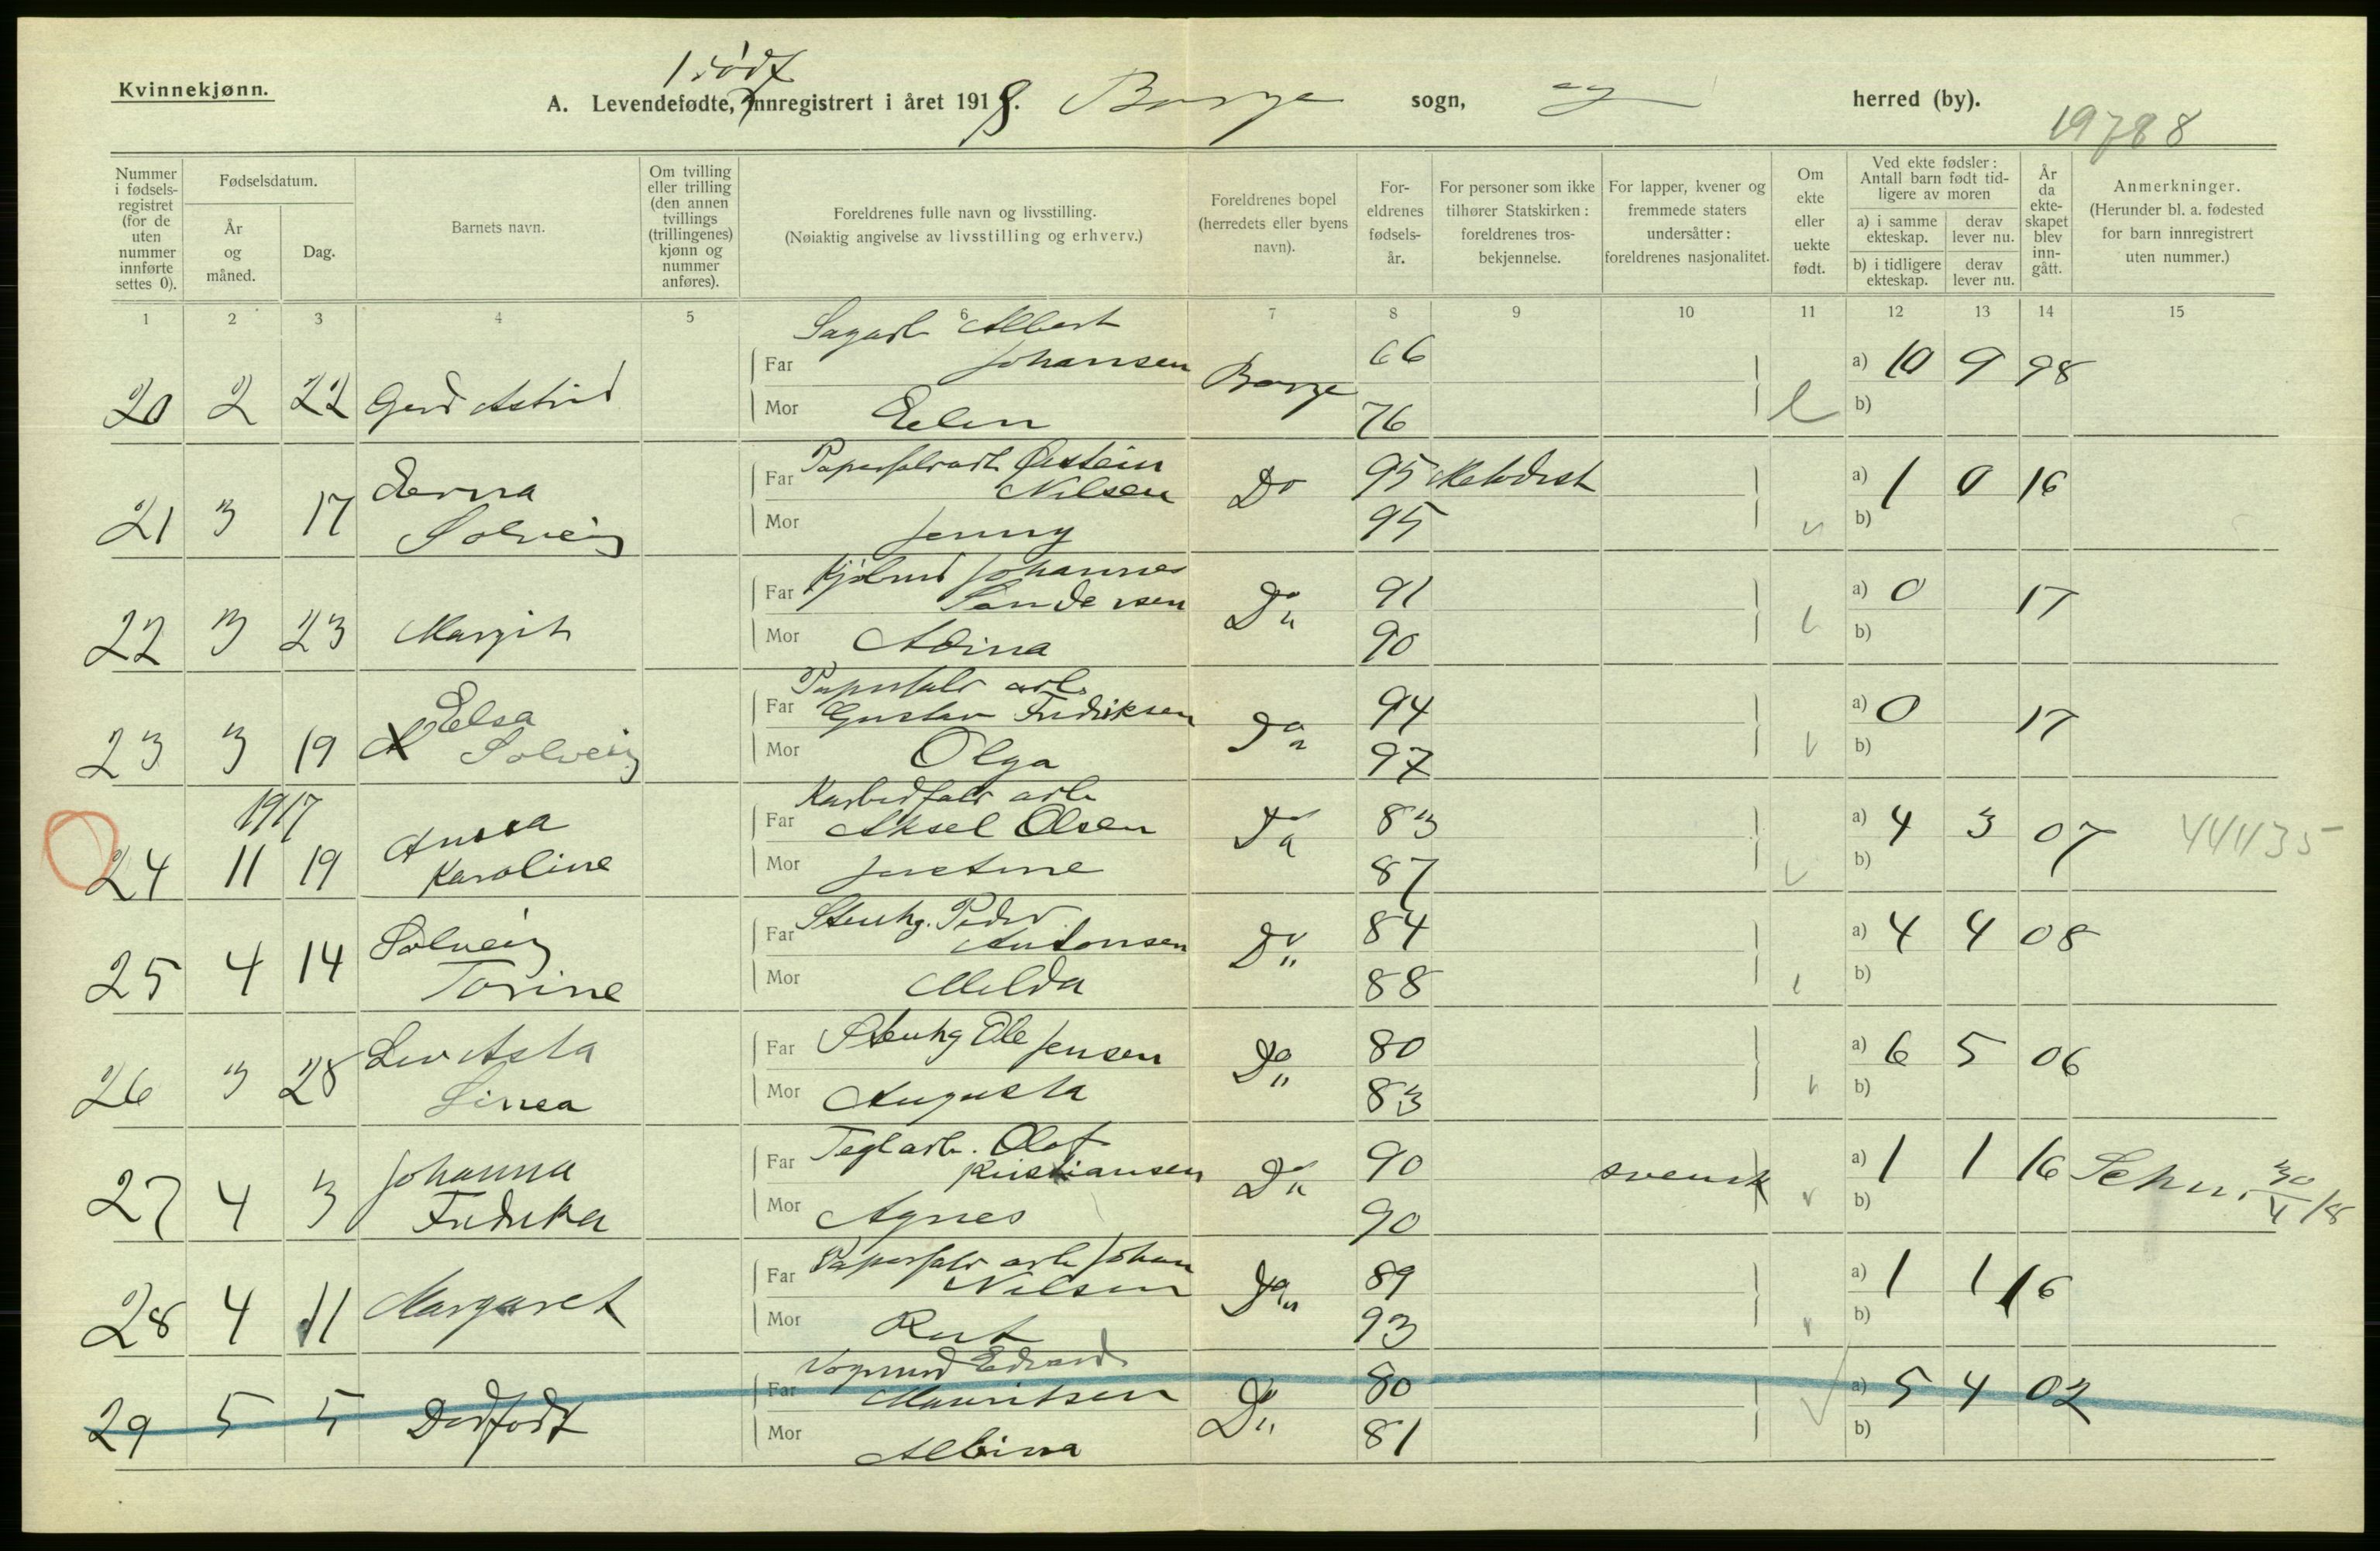 Kvinnekjønn.
1 født
A. Levendefødte, innregistrert i året 1918. Borge sogn, og herred (by).
19788
Nummer i fødsels-registret (for de uten nummer innførte settes 0).
Fødselsdatum.
År og måned.
Dag.
Barnets navn.
Om tvilling eller trilling (den annen tvillings (trillingenes) kjønn og nummer anføres).
Foreldrenes fulle navn og livsstilling.
(Nøiaktig angivelse av livsstilling og erhverv.)
Foreldrenes bopel (herredets eller byens navn).
For-eldrenes fødsels-år.
For personer som ikke tilhører Statskirken: foreldrenes tros-bekjennelse.
For lapper, kvener og fremmede staters undersåtter: foreldrenes nasjonalitet.
Om ekte eller uekte født.
Ved ekte fødsler: Antall barn født tid-ligere av moren
a) i samme ekteskap.
derav lever nu.
b) i tidligere ekteskap.
derav lever nu.
År da ekte-skapet blev inn-gått.
Anmerkninger.
(Herunder bl. a. fødested for barn innregistrert uten nummer.)
1 2 3 4 5 6 7 8 9 10 11 12 13 14 15
Sagarb Albert
20 2 22 Gerd Astrid Far Johansen Borge 66 e a) 10 9 98
Mor Elen 76 b)
21 3 17 Erna Solveig Far Papirfabrarb Øistein Nilsen Do 95 Metodist a) 1 0 16
Mor Jenny 95 b)
22 3 23 Margit Far Kjøbmd Johannes Sandersen Do 91 a) 0 17
Mor Adina 90 b)
Papirfabr arb
23 3 19 Elsa Solveig Far Gustav Fredriksen Do 94 a) 0 17
Mor Olga 97 b)
1917
Karbidfabr arb
24 11 19 Anna Karoline Far Aksel Olsen Do 83 a) 4 3 07 44435
Mor Justine 87 b)
25 4 14 Solveig Torine Far Stenhg. Peder Antonsen Do 84 a) 4 4 08
Mor Milda 88 b)
26 3 28 Liv Asta Linea Far Stenhg Ole Jensen Do 80 a) 6 5 06
Mor Augusta 83 b)
27 4 3 Johanna Fredrika Far Teglarb. Olof Kristiansen Do 90 svensk a) 1 1 16 30/4 18
Mor Agnes 90 b)
28 4 11 Margaret Far Papirfabr arb Johan Nilsen Do 89 a) 1 1 16
Mor Rut 93 b)
29 5 5 Dødfødt Far Vognmd Edvard Mauritsen Do 80 a) 5 4 02
Mor Albina 81 b)